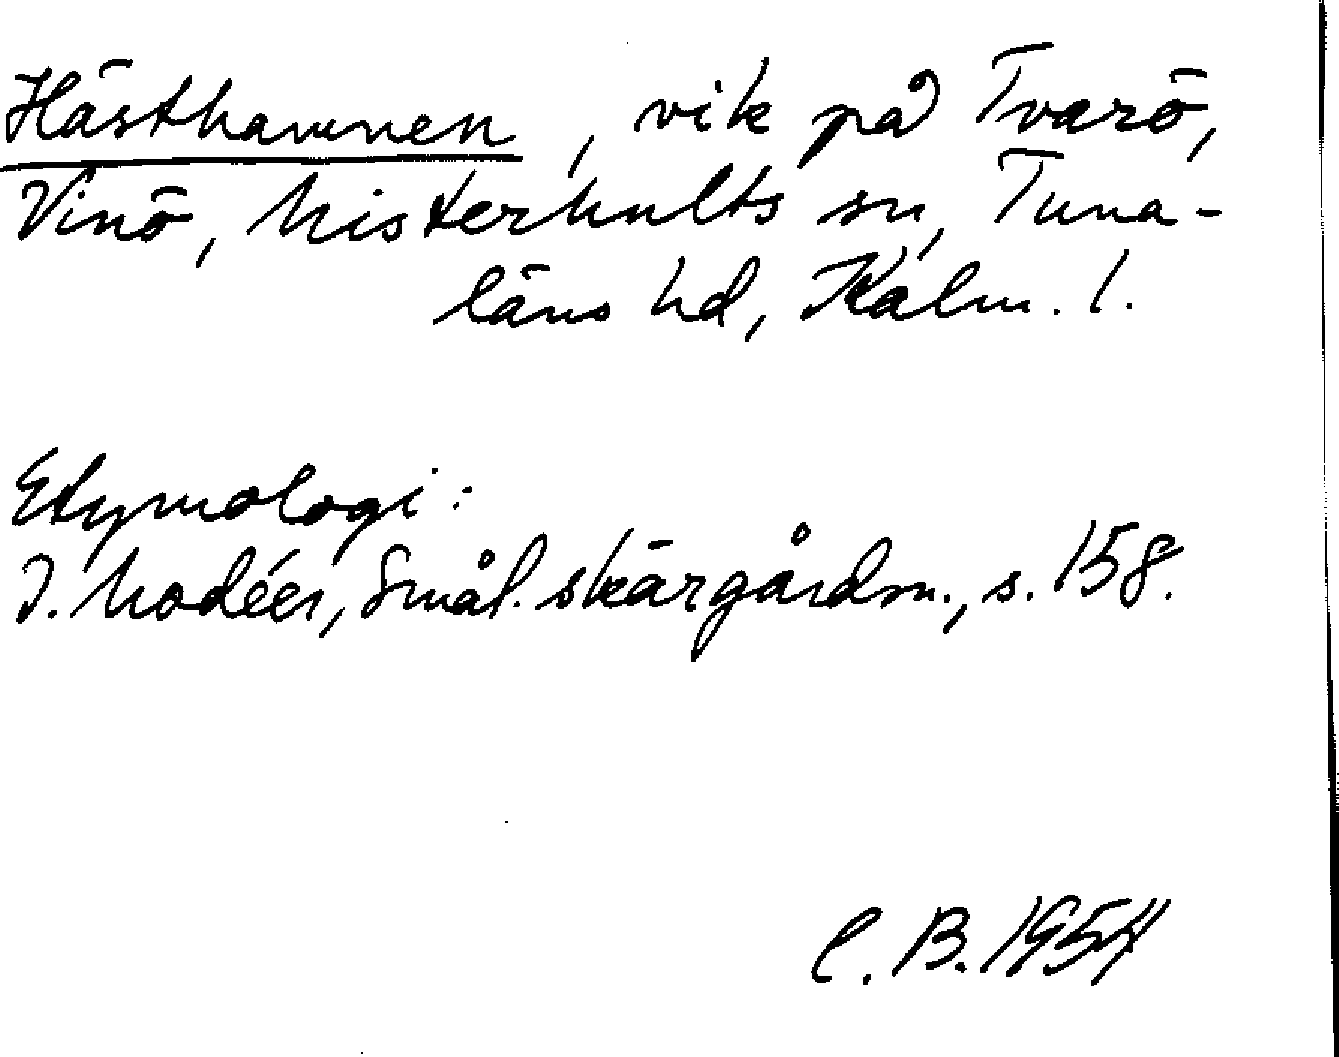 Hästhamnen, vik på Tvärö,
Vinö, Misterhults sn, Tuna-
läns hd, Kalm. l.
Etymologi:
I. Modéer, Smål. skärgårdsn., s. 158.
C. B. 1954